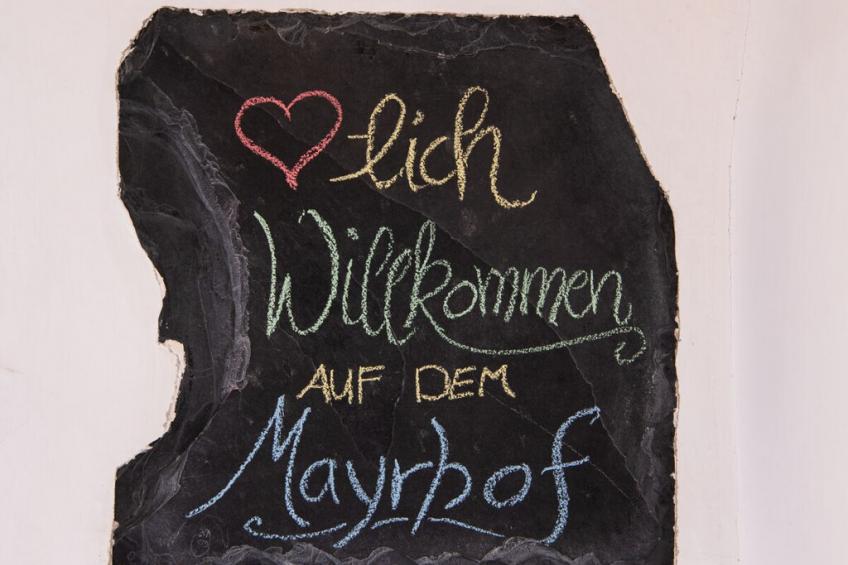 ❤lich
Willkommen
AUF DEM
Mayrhof